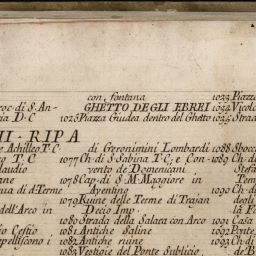 con, fontana 1033 Piazz
roc. di S. An- GHETTO DEGLI EBREI 1034 Vicolo
ia D.C 1025 Piazza Giudea dentro del Ghetto 1035 Strad
II - RIPA
e Achilleo T.C. di Geronimini Lombardi 1088 Sbocc
o T.C 1077 Ch. di S. Sabina T.C; e Con- 1089 Ch. di
laudio vento de Domenicani Stef
ane 1078 Cap. di S. M. Maggiore in Tem
qua di d. Terme Aventino 1090 Ch. di
1079 Ruine delle Terme di Traian degli
dell'Arco in Decio Imp. la F
1080 Strada della Salara con Arco 1091 Casa
io Cestio 1081 Antiche Saline 1092 Ponte
epelliscono i 1082 Antiche ruine 1093 Ch. di
1083 Vestigie del Ponte Sublicio de B